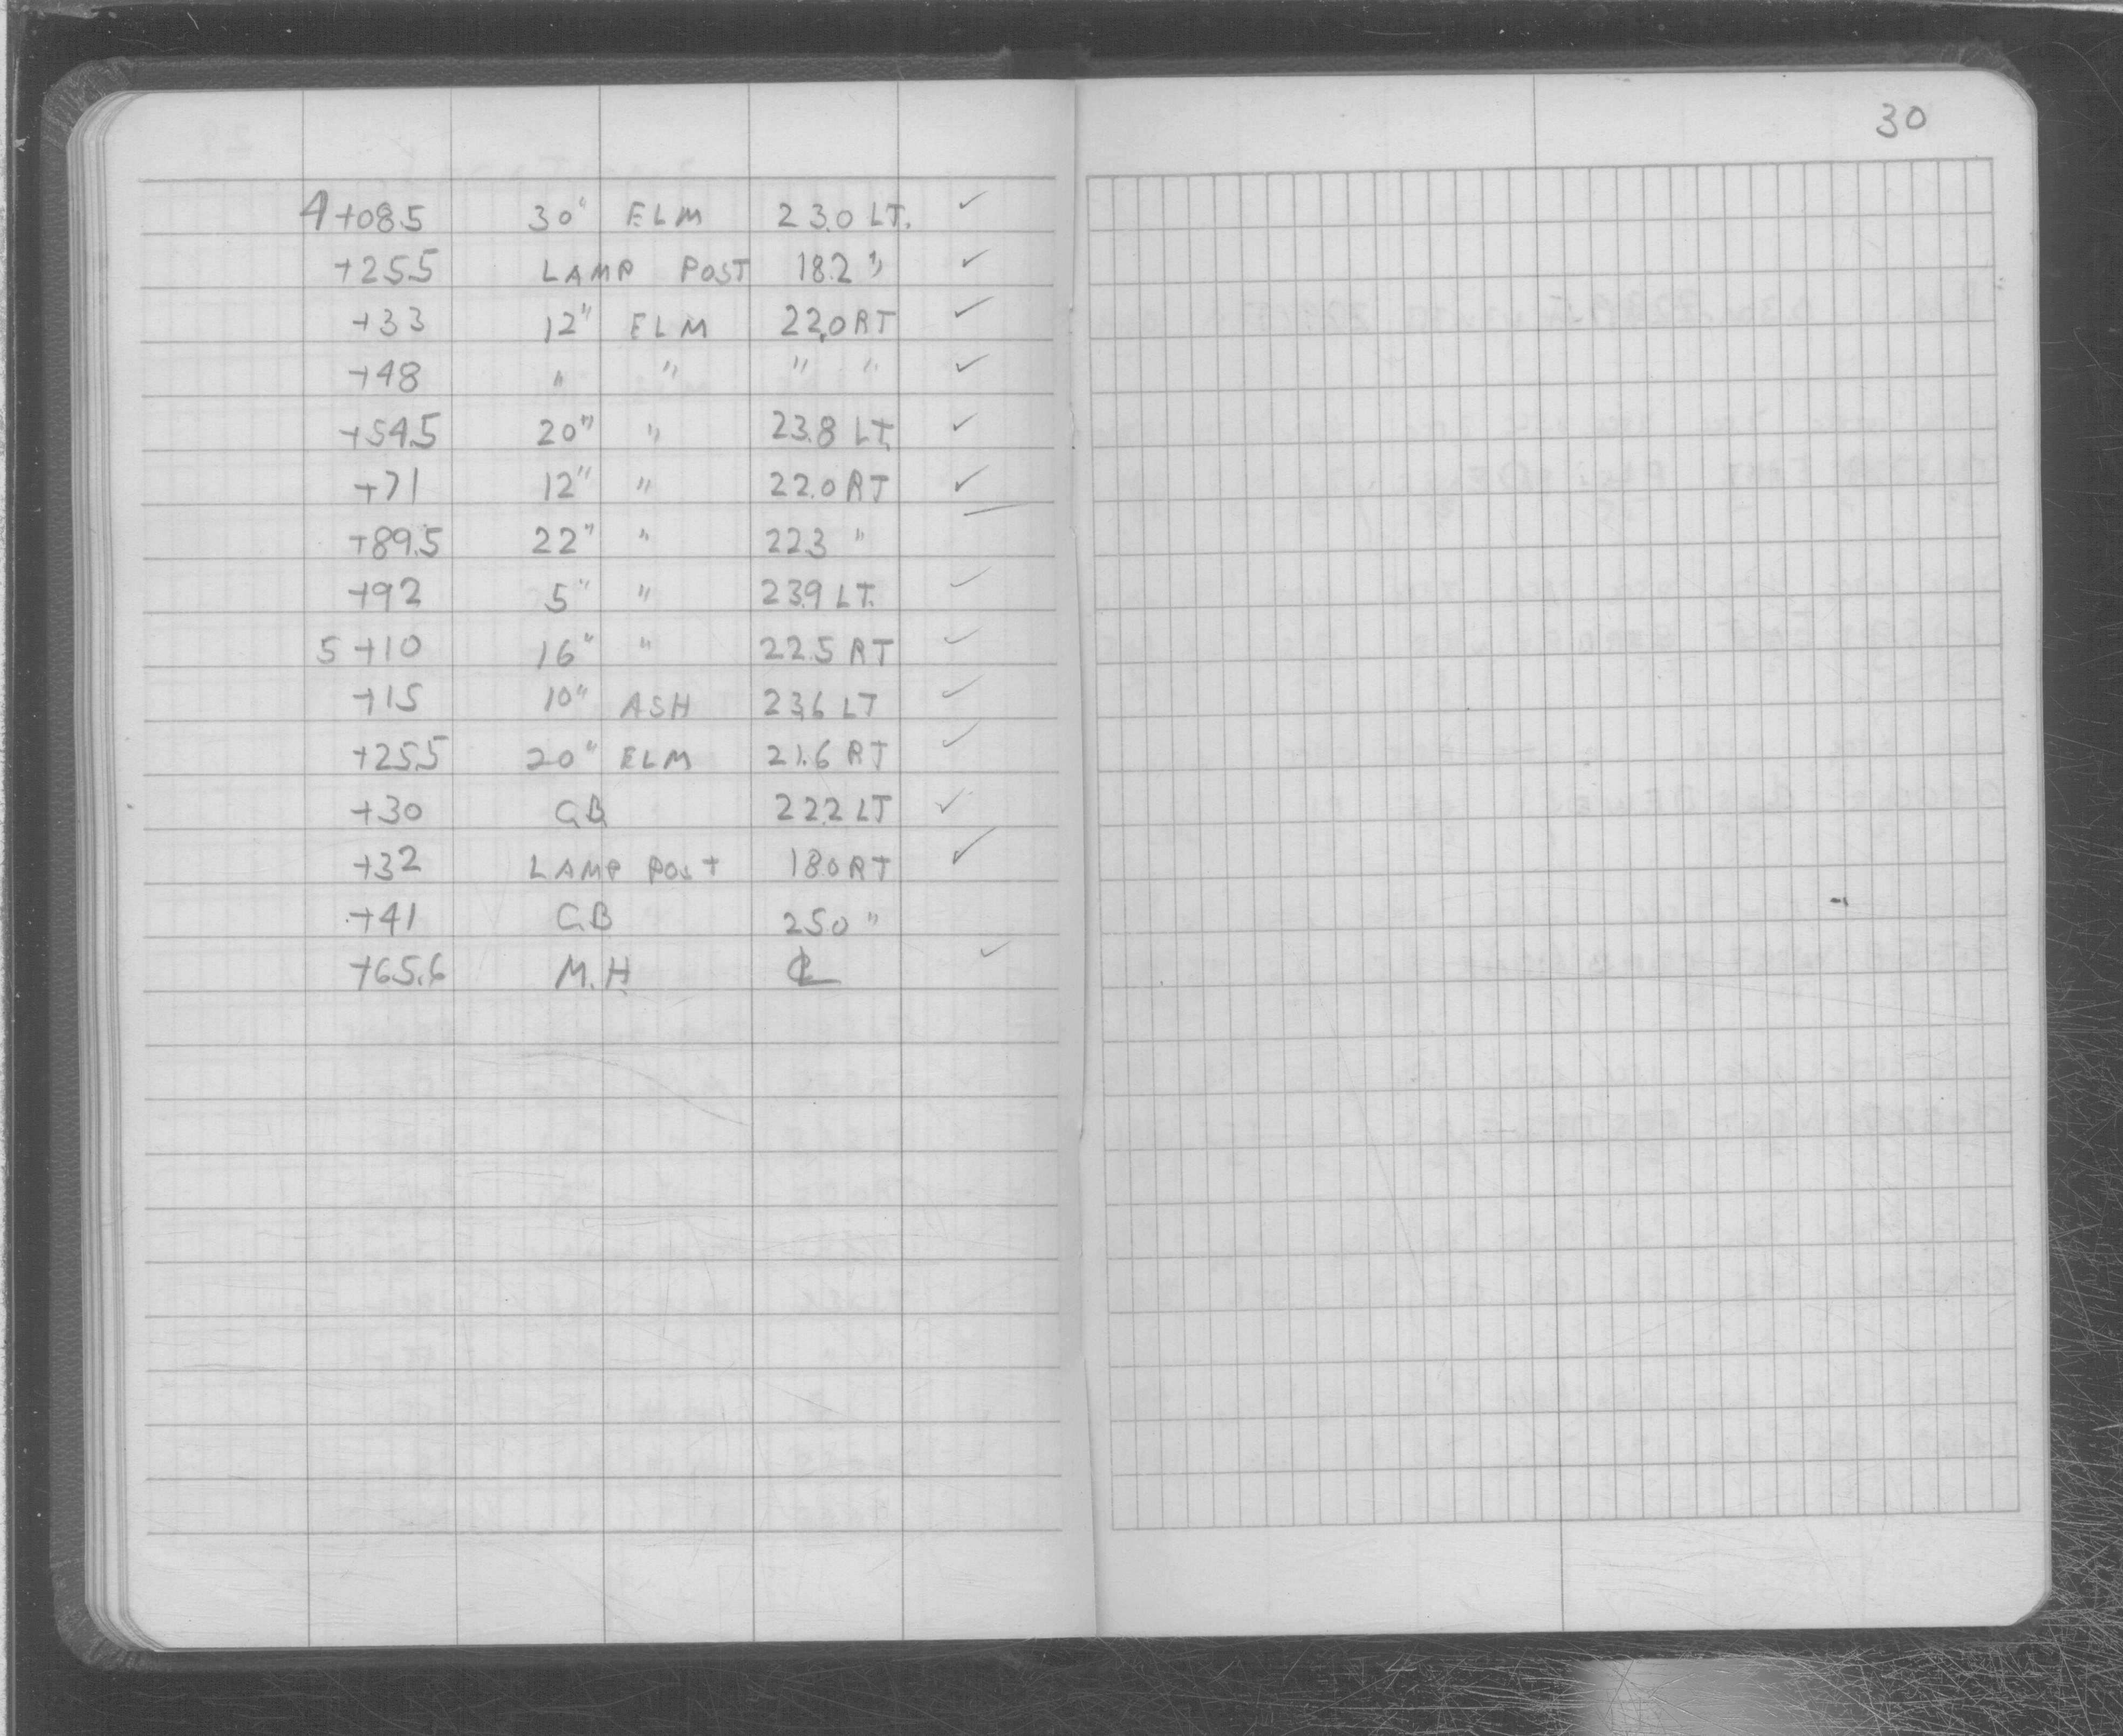 30
4+08.5 30" ELM 23.0 LT. ✓
+25.5 LAMP POST 18.2 " ✓
+33 12" ELM 22.0 RT ✓
+48 " " " " ✓
+54.5 20" " 23.8 LT. ✓
+71 12" " 22.0 RT ✓
+89.5 22" " 22.3 "
+92 5" " 23.9 LT. ✓
5+10 16" " 22.5 RT ✓
+15 10" ASH 23.6 LT ✓
+25.5 20" ELM 21.6 RT ✓
+30 C.B. 22.2 LT ✓
+32 LAMP POST 18.0 RT ✓
+41 C.B 25.0 "
+65.6 M.H. ℄ ✓